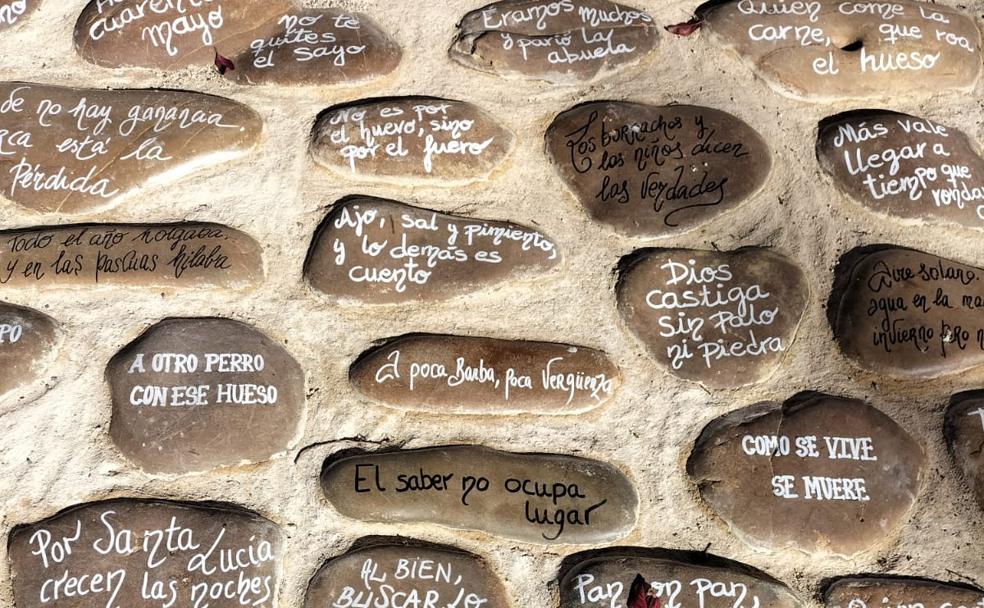 cuarenta
mayo
no te
quites
el sayo
Eramos muchos
y parió la
abuela
Quien come la
carne, que roa
el hueso
de no hay ganancia
está la
Pérdida
No es por
el huevo, sino
por el fuero
Los borrachos y
los niños dicen
las verdades
Más vale
llegar a
tiempo que
Todo el año holgaba
y en las pascuas hilaba
Ajo, sal y pimiento,
y lo demás es
cuento
Dios
castiga
sin palo
ni piedra
Aire solano.
agua en la
invierno pero
A OTRO PERRO
CON ESE HUESO
A poca Barba, poca Vergüenza
COMO SE VIVE
SE MUERE
El saber no ocupa
lugar
Por Santa Lucía
crecen las noches
AL BIEN,
BUSCARLO
Pan con pan,